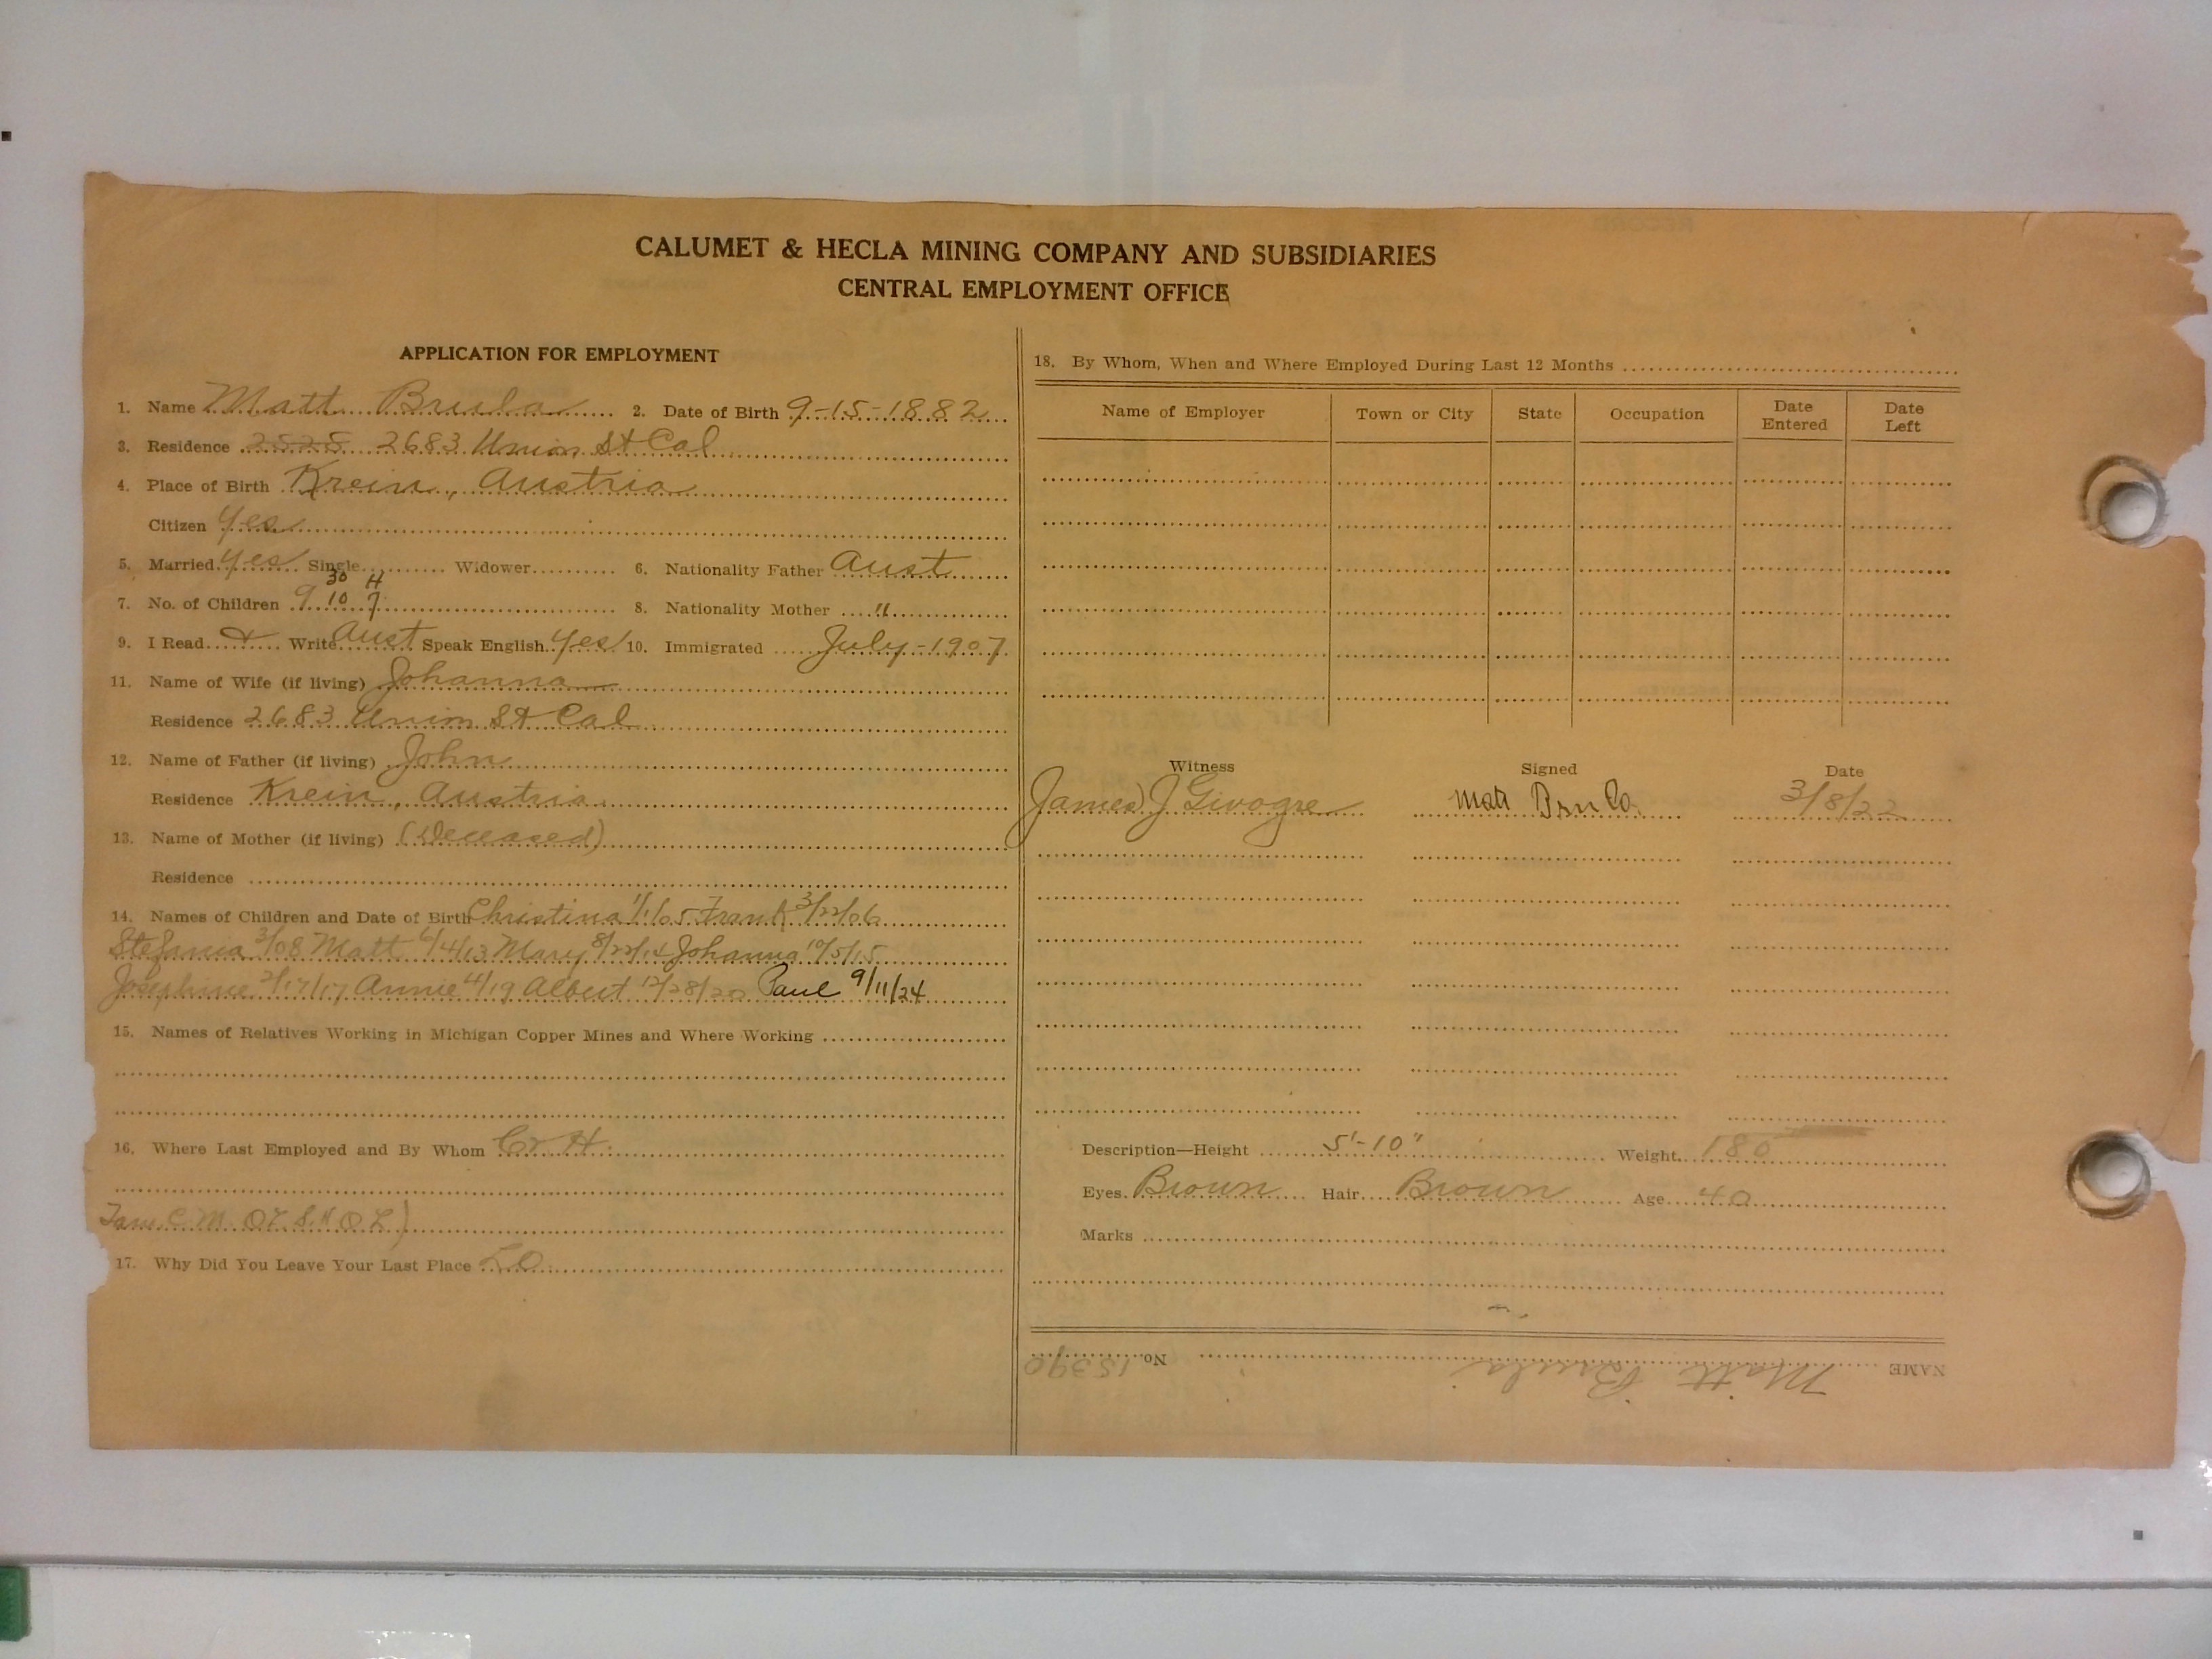 CALUMET & HECLA MINING COMPANY AND SUBSIDIARIES
CENTRAL EMPLOYMENT OFFICE
APPLICATION FOR EMPLOYMENT
1. Name Matt Brula 2. Date of Birth 9-15-1882
3. Residence 2525 2683 Union St Cal
4. Place of Birth Krein, Austria
Citizen Yes
5. Married yes Single Widower 6. Nationality Father Aust
30 H
7. No. of Children 9 10 7 8. Nationality Mother "
9. I Read & Write Aust Speak English Yes 10. Immigrated July-1907
11. Name of Wife (if living) Johanna
Residence 2683 Union St Cal
12. Name of Father (if living) John
Residence Krein, Austria
13. Name of Mother (if living) (Deceased)
Residence
14. Names of Children and Date of Birth Christina 1/1/05 Frank 3/22/06
Stefania 3/08 Matt 6/4/13 Mary 8/22/14 Johanna 10/5/15
Josephine 2/17/17 Annie 4/19 Albert 12/28/20 Paul 9/11/24
15. Names of Relatives Working in Michigan Copper Mines and Where Working
16. Where Last Employed and By Whom C & H
17. Why Did You Leave Your Last Place LO
18. By Whom, When and Where Employed During Last 12 Months
Name of Employer Town or City State Occupation Date Entered Date Left
Witness Signed Date
James J 3/8/22
Description—Height 5'-10" Weight 180
Eyes Brown Hair Brown Age 40
Marks
NAME Matt Brula No. 15390